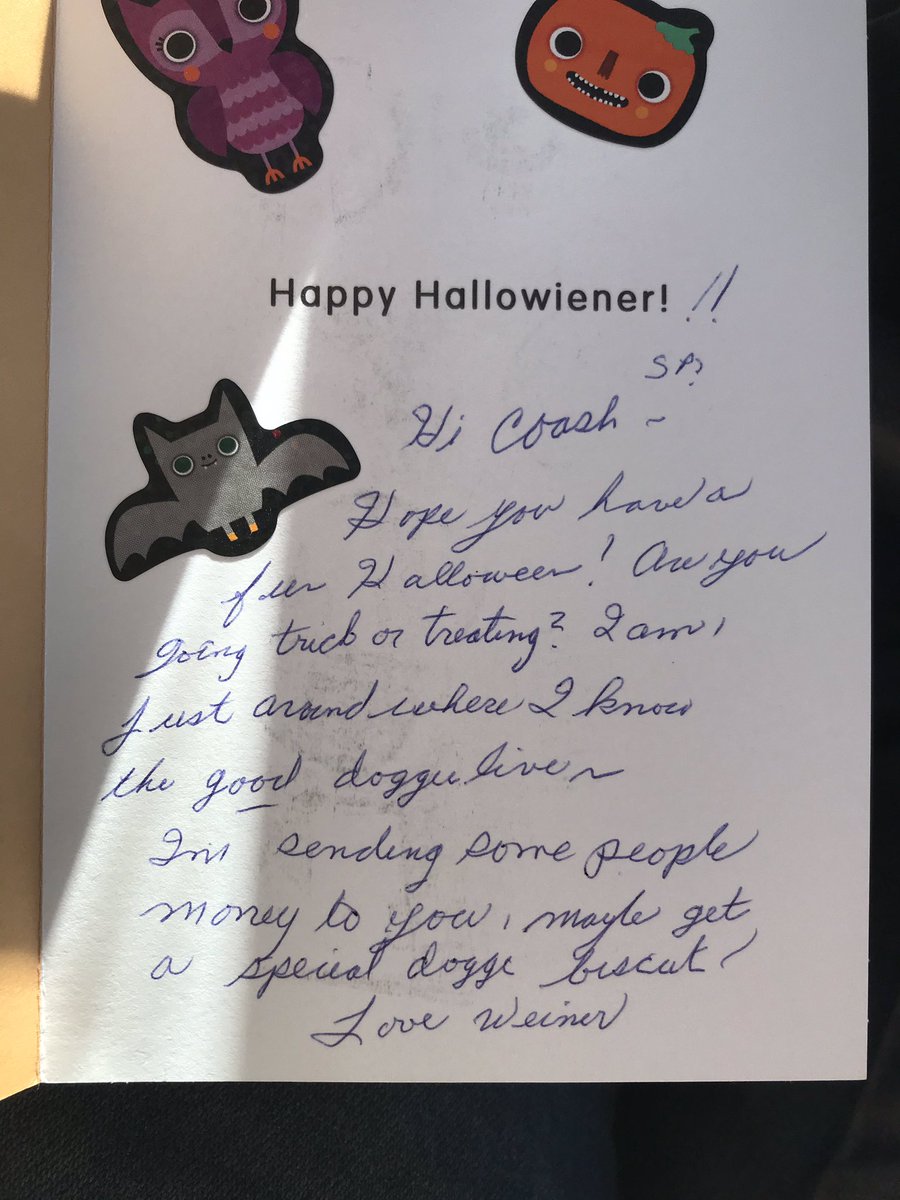 Happy Hallowiener! !!
SP?
Hi Coash ~
Hope you have a
fun Halloween! Are you
going trick or treating? I am,
Just around where I know
the good doggee live ~
Im sending some people
money to you, maybe get
a special dogge biscut!
Love Weiner